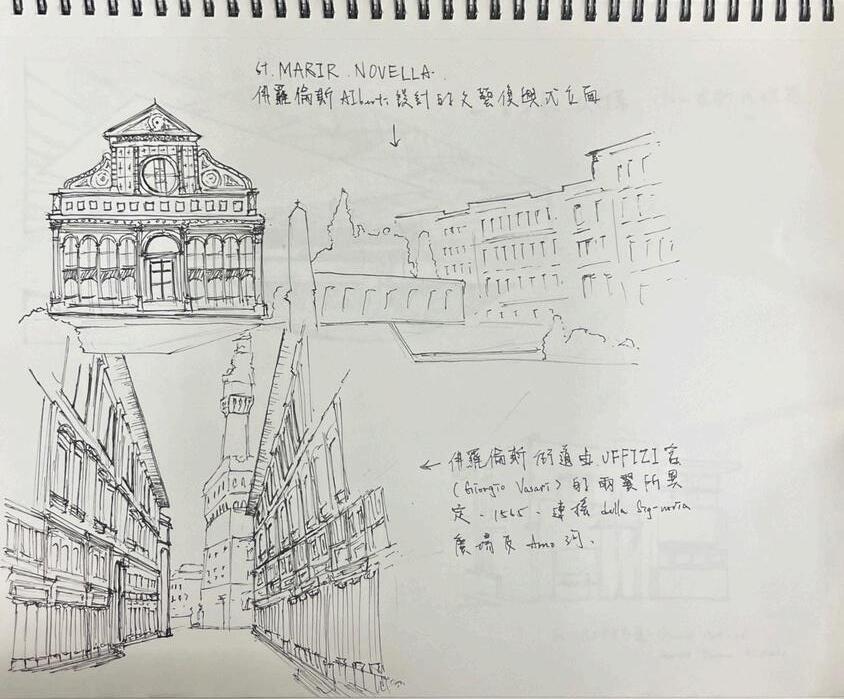 St. MARIR. NOVELLA.
伊羅倫斯 Alberti 設計的文藝復興式立面
伊羅倫斯街道由UFFIZI宮
(Giorgio Vasari)的兩翼所界
定.1565.連接 della Signoria
廣場及 Arno 河.